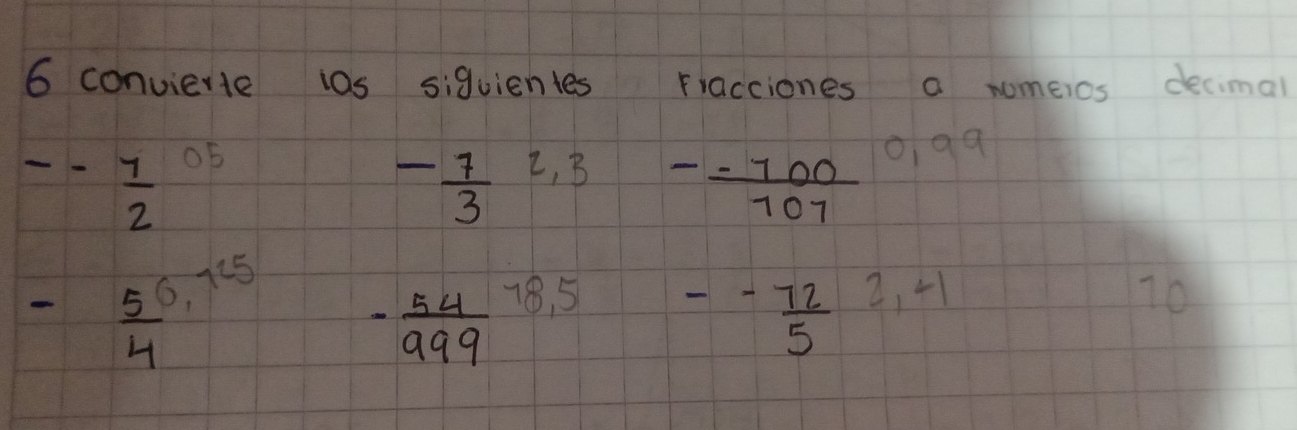 6 convierte las siguientes Fracciones a numeros decimal
- - 1/2 05 - 7/3 2,3 - - 100/101 0,99
- 5/4 0,125 - 54/999 18,5 - - 12/5 2,4 10